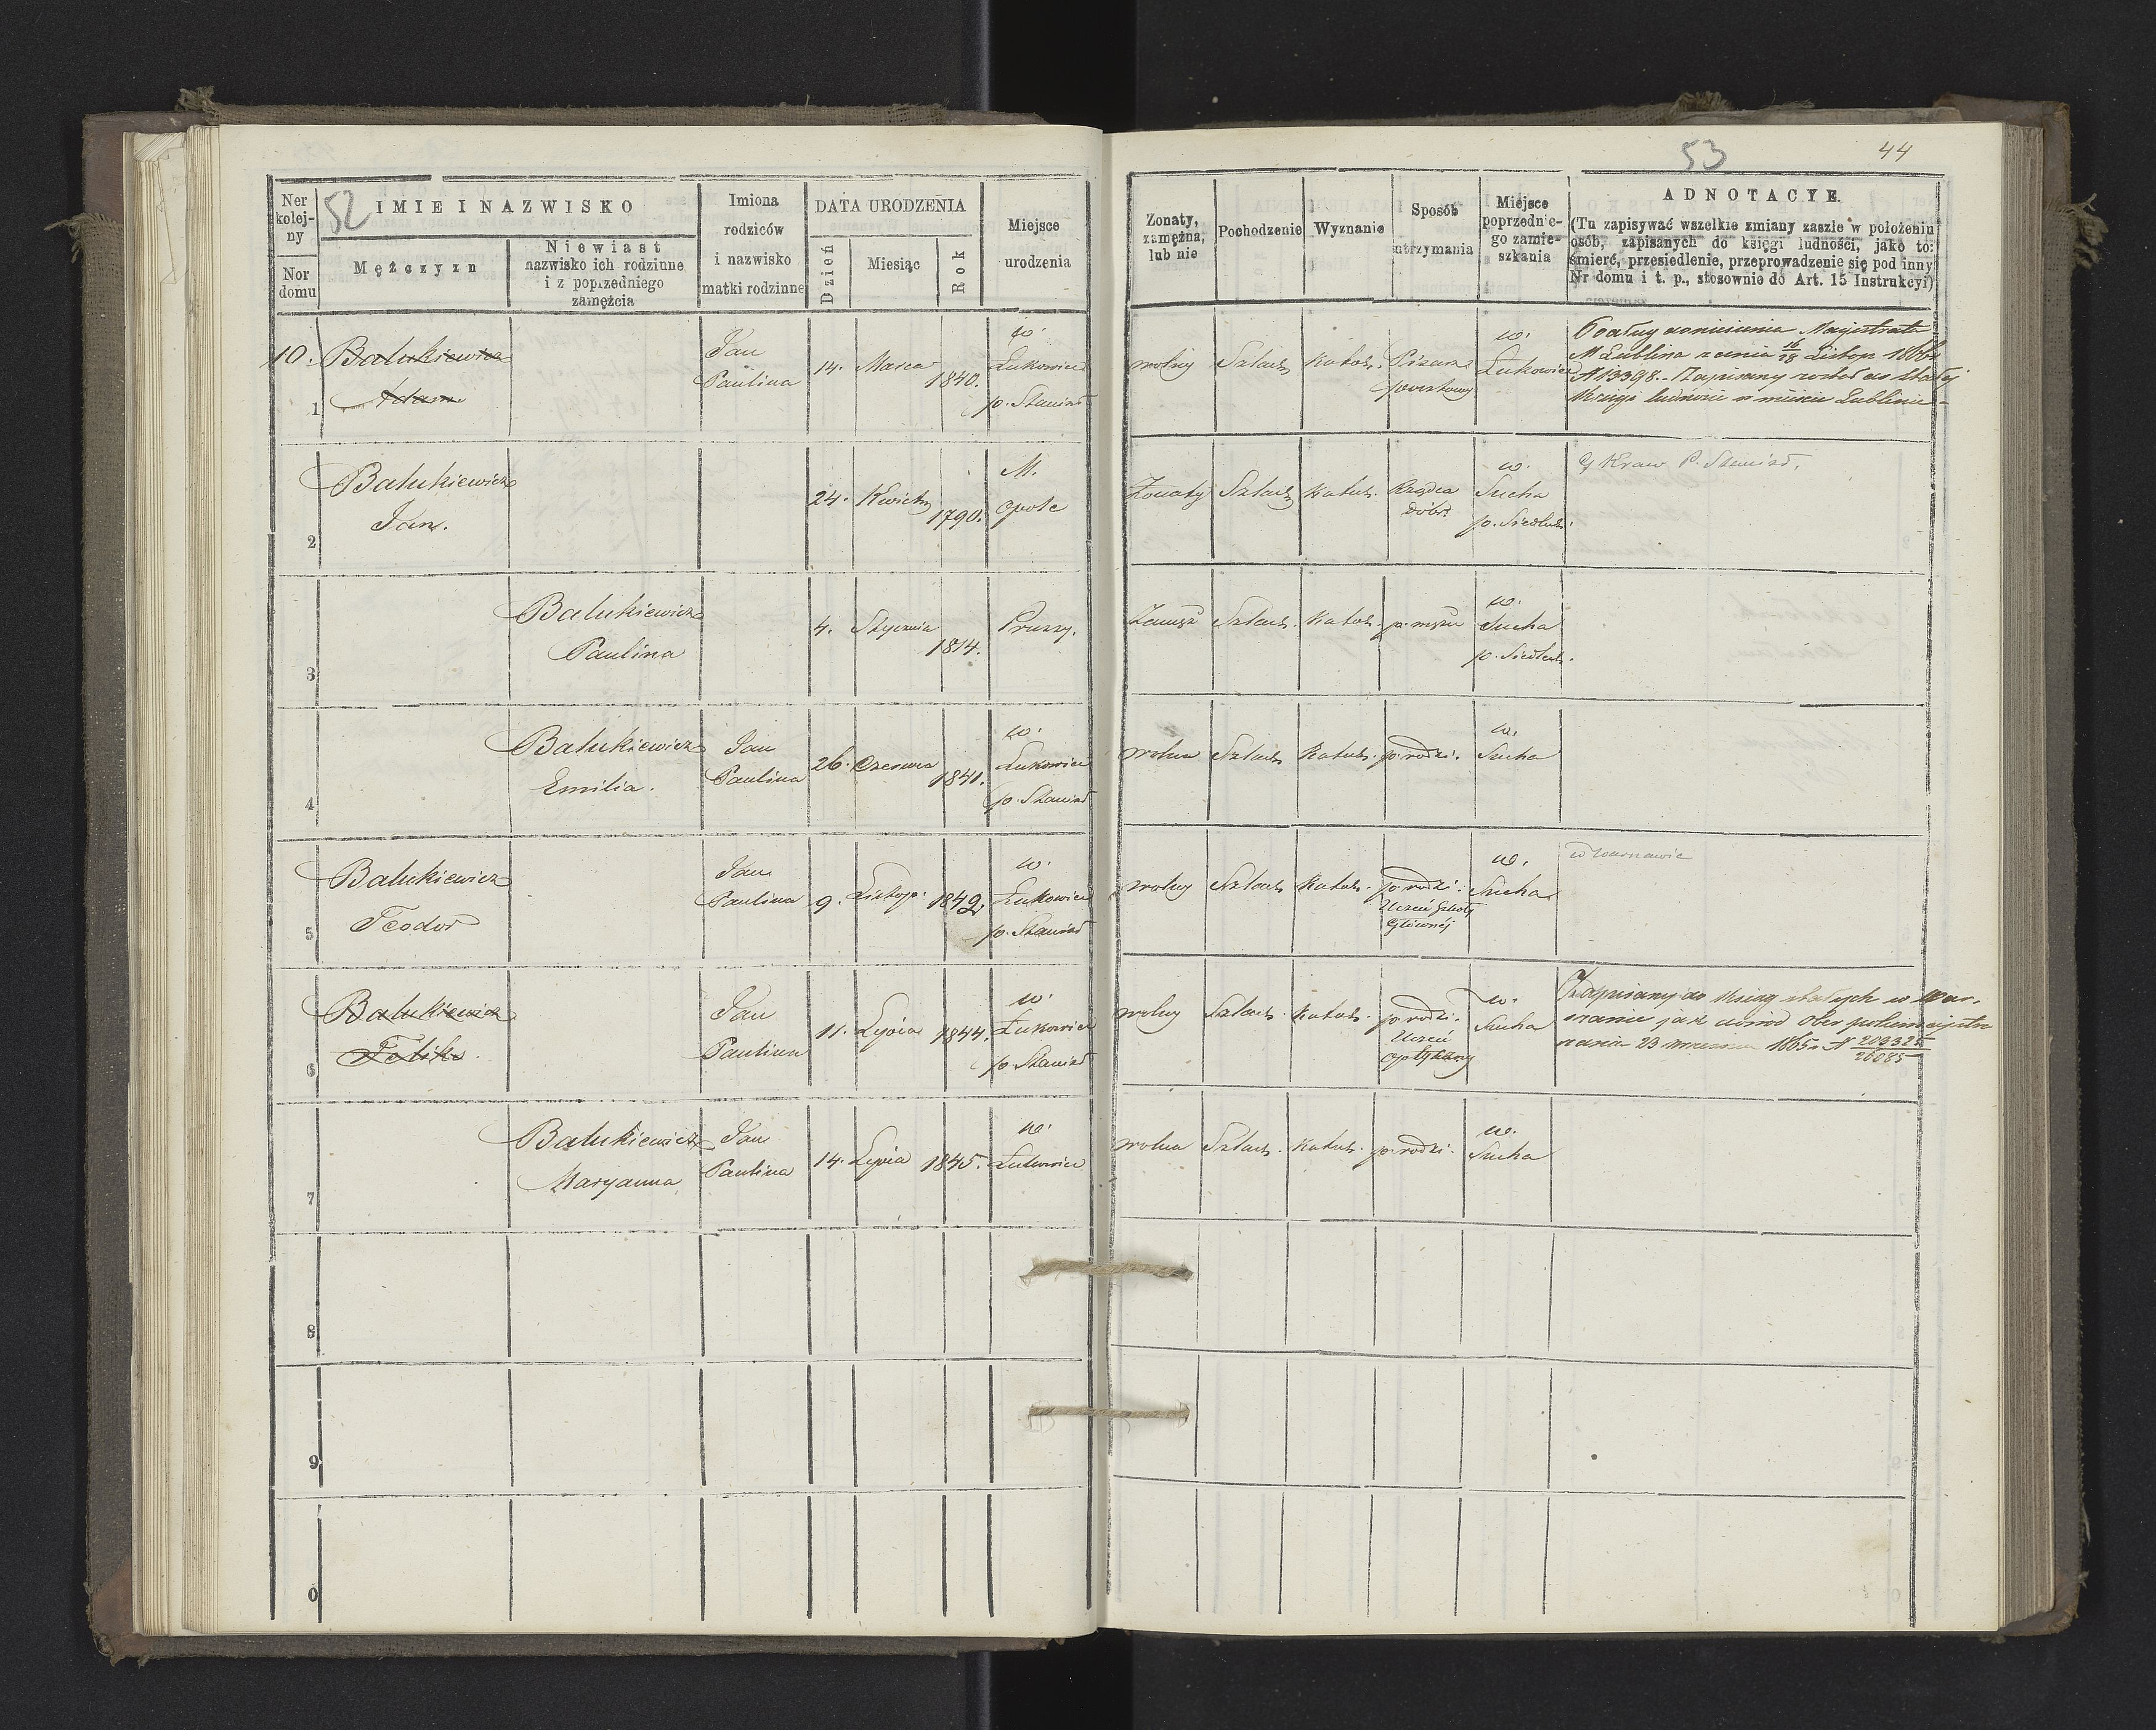 52
Ner kolej-ny
Nor domu
IMIE I NAZWISKO
Mężczyzn
Niewiast
nazwisko ich rodzinne
i z poprzedniego
zamężcia
Imiona
rodziców
i nazwisko
matki rodzinne
DATA URODZENIA
Dzień
Miesiąc
Rok
Miejsce
urodzenia
53
44
Zonaty,
zamężna,
lub nie
Pochodzenie
Wyznanie
Sposób
utrzymania
Miejsce
poprzednie-
go zamie-
szkania
ADNOTACYE.
(Tu zapisywać wszelkie zmiany zaszłe w położeniu
osób, zapisanych do księgi ludności, jako to:
śmierć, przesiedlenie, przeprowadzenie się pod inny
Nr domu i t. p., stosownie do Art. 15 Instrukcyi)
10.
1
Bałukiewicz
Adam
Jan
Paulina
14. Marca 1840.
w.
Łukowiec
p. Stanisł
wolny Szlach Katol. Pisarz
prowentowy
w.
Łukowiec
Podług doniesienia Magistratu
M Lublina z dnia 16/18 Listop 1866
N 13398. Zapisany został do stałej
Księgi ludności w mieście Lublinie
2
Bałukiewicz
Jan.
24. Kwietn 1790.
M.
Opole
Zonaty Szlach Katol. Rządca
dóbr
w.
Sucha
p. Siedlec.
P. Stanisł.
3
Bałukiewicz
Paulina
4. Stycznia 1814.
Prussy.
Zamęż Szlach. Katol. p. mężu
w.
Sucha
p. Siedlec.
4
Bałukiewicz
Emilia.
Jan
Paulina
26. Czerwca 1841.
w.
Łukowiec
p. Stanisł
wolna Szlach Katol. p. rodzi.
w.
Sucha
5
Bałukiewicz
Teodor
Jan
Paulina
9. Listop. 1842.
w.
Łukowiec
p. Stanisł
wolny Szlach Katol. p. rodzi.
Uczeń Szkoły
Głównéj
w.
Sucha
w Warszawie
6
Bałukiewicz
Feliks.
Jan
Paulina
11. Lipca 1844.
w.
Łukowiec
p. Stanisł
wolny Szlach. Katol. p. rodzi.
Uczeń
aptekarsky
w.
Sucha
Zapisany do Ksiąg stałych w War-
szawie jak dowód Ober policmajstra
z dnia 23 1865 r N 209325/26085
7
Bałukiewicz
Maryanna
Jan
Paulina
14. Lipca 1845.
w.
Łukowiec
wolna Szlach. Katol. p. rodzi.
w.
Sucha
8
9
0